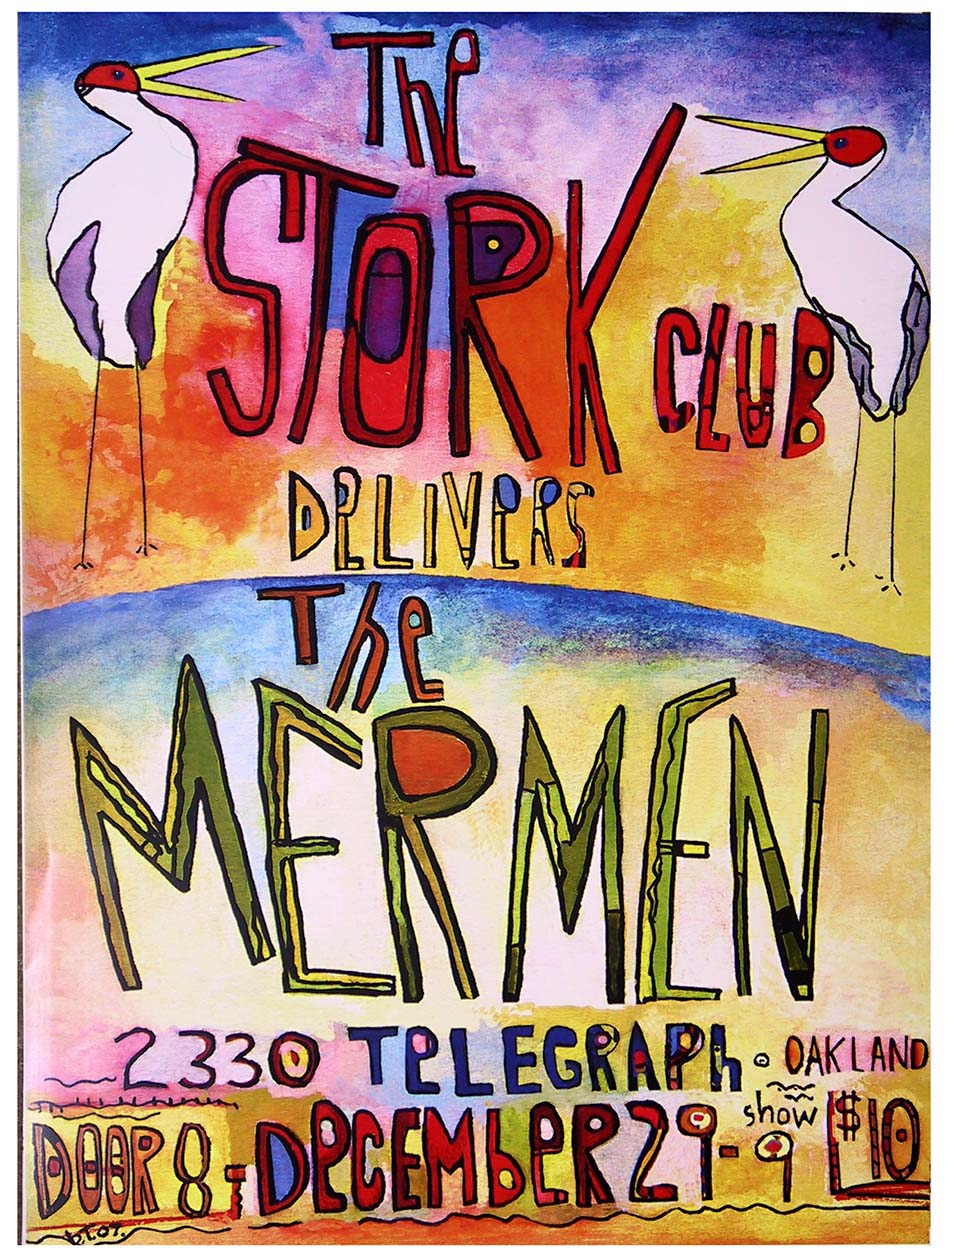 The
STORK
CLUB
DELIVERS
The
MERMEN
2330 TELEGRAPH · OAKLAND
DOOR 8 - DECEMBER 29 - show 9 $10
b.T. 07.